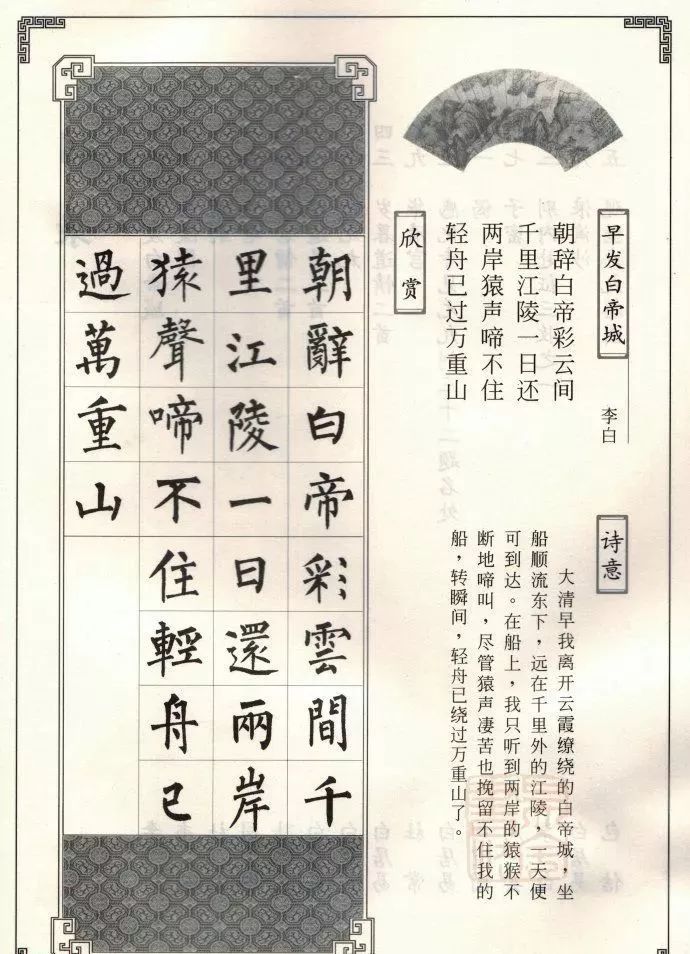 早发白帝城
李白
朝辞白帝彩云间
千里江陵一日还
两岸猿声啼不住
轻舟已过万重山
诗意
大清早我离开云霞缭绕的白帝城，坐
船顺流东下，远在千里外的江陵，一天便
可到达。在船上，我只听到两岸的猿猴不
断地啼叫，尽管猿声凄苦也挽留不住我的
船，转瞬间，轻舟已绕过万重山了。
欣赏
朝辭白帝彩雲間千
里江陵一日還兩岸
猿聲啼不住輕舟已
過萬重山